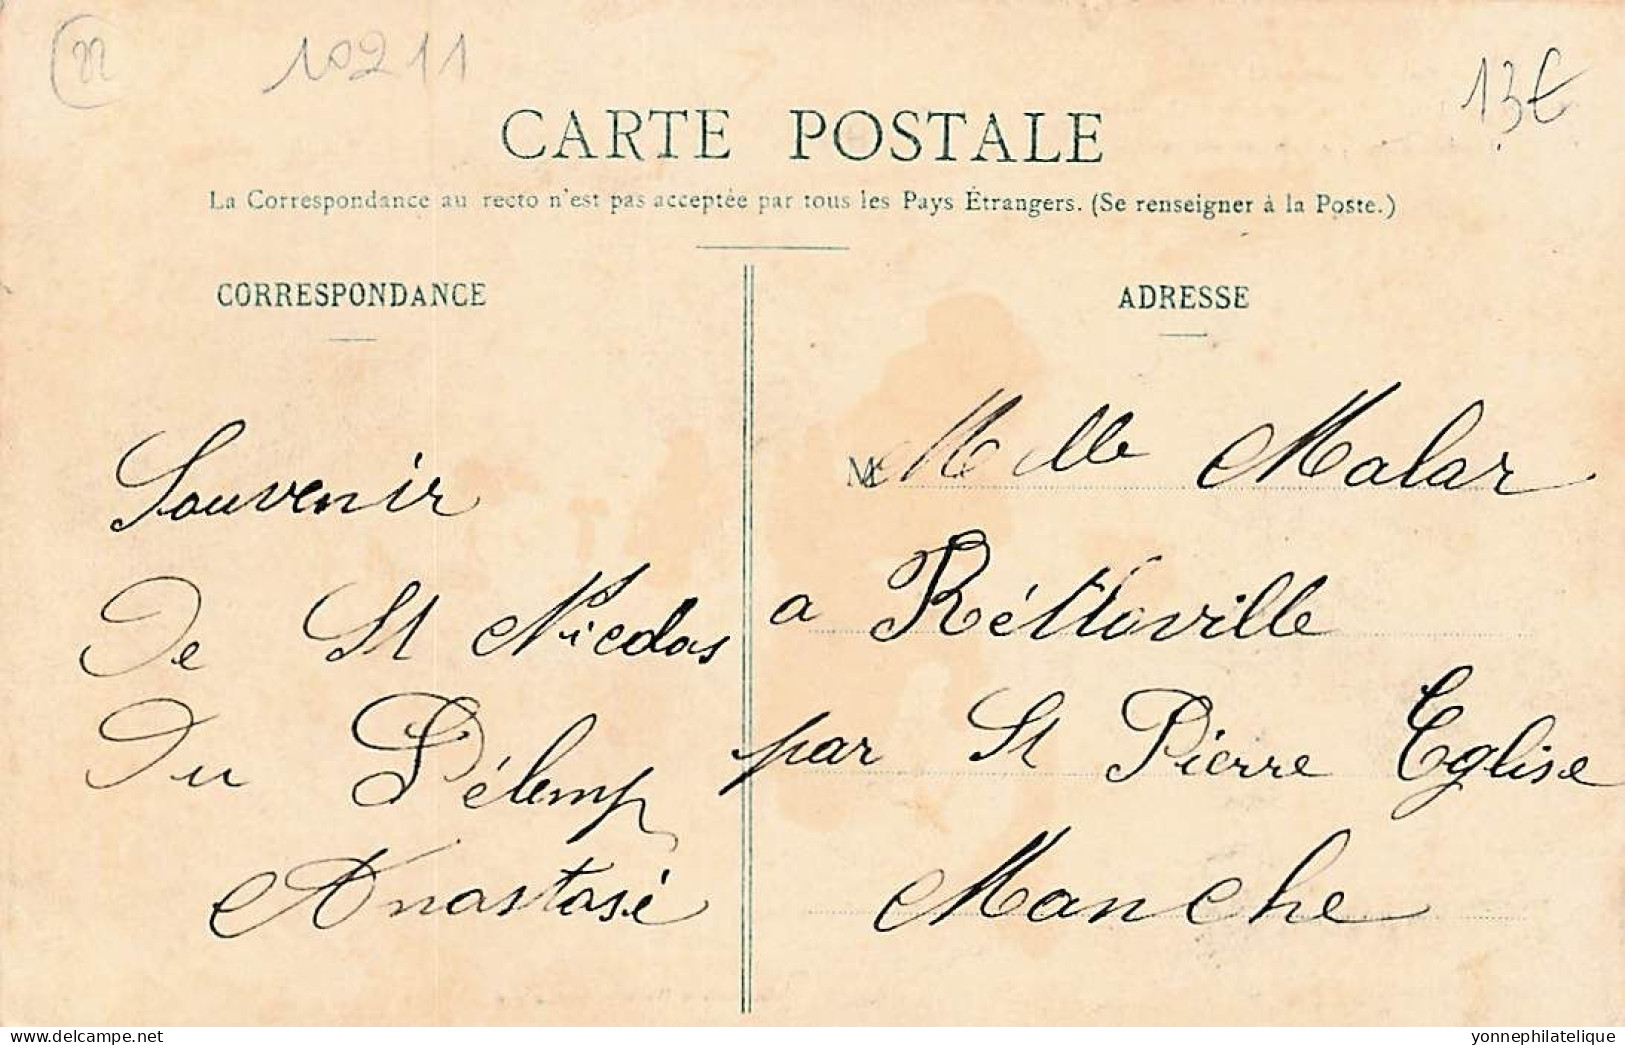 22
10211
13€
CARTE POSTALE
La Correspondance au recto n'est pas acceptée par tous les Pays Étrangers. (Se renseigner à la Poste.)
CORRESPONDANCE
Souvenir
De St Nicolas
Du Pélemp
Anastasie
ADRESSE
M Mlle Malar
a Réttoville
par St Pierre Eglise
Manche
delcampe.net
yonnephilatelique